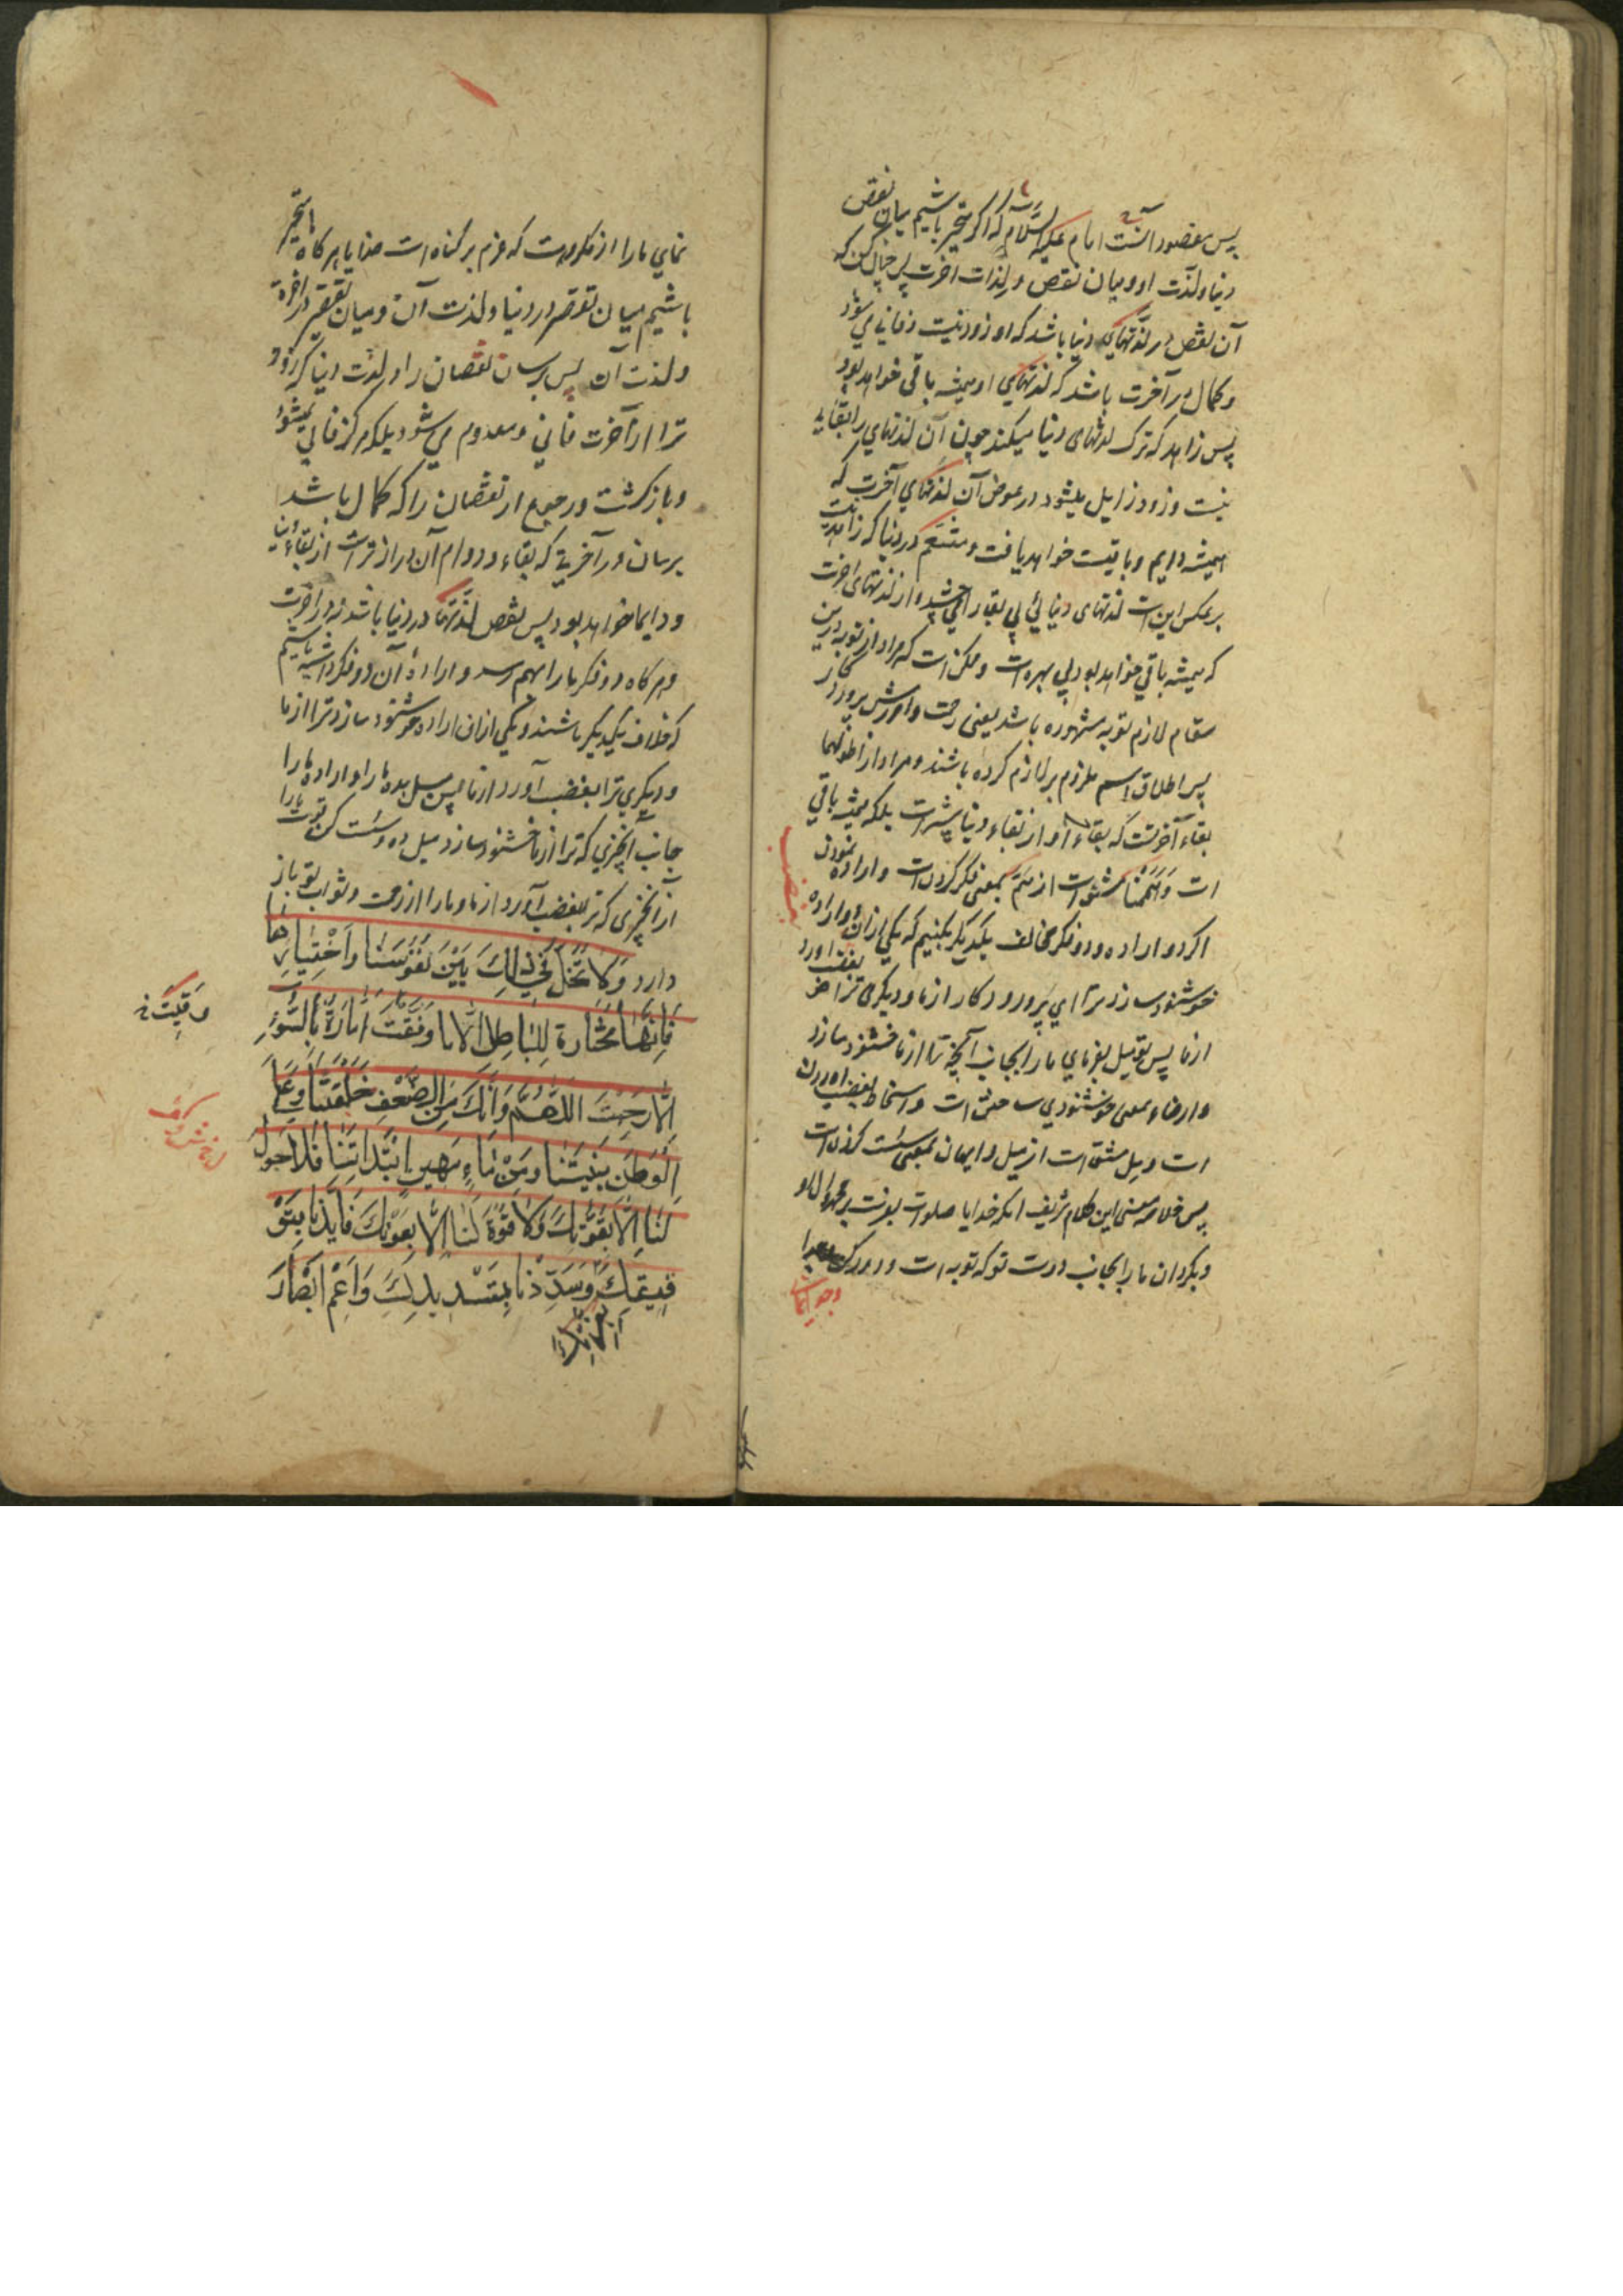 پس مقصود آنست امام علیه السلام که اگر متحیر باشیم میان نقص
دنیا و لذت او و میان نقص و لذات آخرت پس چنان کن که
آن نقص در لذتهای دنیا باشد که او زود نیست و فانی می شود
و کمال در آخرت باشد که لذتهای او همیشه باقی خواهد بود
پس زاهد که ترک لذتهای دنیا میکند چون آن لذتهای را بقایی
نیست و زود زایل میشود در عوض آن لذتهای آخرت که
همیشه دایم و باقیست خواهد یافت و متنعم در دنیا که زاهد نیست
بر عکس این است لذتهای دنیائی بی بقا را چشید و از لذتهای اخرت
که همیشه باقی خواهد بود بی بهره است و ممکن است که مراد از توبه درین
مقام لازم توبه مشهوره باشد یعنی رحمت و آمرزش پروردکار
پس اطلاق اسم ملزوم بر لازم کرده باشند و مراد از اطولهما
بقاء آخرتست که بقاء او از بقاء دنیا بیشتر است بلکه همیشه باقی
است وَهَمَمْنا مشتق است از هَمّ بمعنی فکر کردن است و اراده نمودن
اکر دو اراده و دو فکر مخالف یکدیکر بکنیم که یکی ازان دو اراده
خوشنود سازد ترا ای پرورد کار از ما و دیکری ترا بغضب اورد
از ما پس تو میل بفرمای ما را بجانب آنچه ترا از ما خشنود سازد
و ارضاء بمعنی خوشنودی ساختن است و اسخاط بغضب اوردن
است و مِل مشتق است از میل و ایهان بمعنی سست کردن است
پس خلاصه معنی این کلام شریف انکه خدایا صلوات بفرست بر محمد و آل او
و بکردان ما را بجانب دوست تو که توبه است و دور کن
نمای ما را از مکروهت که عزم بر کناه است خدایا هر کاه ما متحیر
باشیم میان تقصیر در دنیا و لذت آن و میان تقصیر در اخرة
و لذت آن پس برسان نقصان را در لذت دنیا که زود
تر از آخرت فانی و معدوم می شود بلکه هرکز فانی نمیشود
و بازکشت و رجوع از نقصان را که کمال باشد
برسان در آخرتی که بقاء و دوام آن دراز تر است از بقاء دنیا
و دایما خواهد بود پس نقص لذتها در دنیا باشد نه در اخرت
و هر کاه دو فکر ما را بهم رسد و اراده آن دو فکر داشته باشیم
که خلاف یکدیکر باشند و یکی ازان اراده خوشنود سازد ترا از ما
و دیکری ترا بغضب آورد از ما پس میل بده ما را و اراده ما را
جانب آنچیزی که ترا از ما خشنود سازد میل ده و سست کن قوت ما را
از آنچیزی که ترا بغضب آورد از ما و ما را از رحمت و ثواب تو باز
دارد وَلا تُخَلِّ فی ذلِكَ بَیْنَ نُفُوسِنا وَاخْتِیارِها
فَاِنَّها مُخْتارَة لِلْباطِلِ اِلّا ما وَفَّقْتَ اَمّارَةٌ بِالسُّوءِ
اِلّا ما رَحِمْتَ اللّهُمَّ وَاِنَّكَ مِنَ الضَّعْفِ خَلَقْتَنا وَعَلَی
الْوَهْنِ بَنَیْتَنا وَمِنْ ماءٍ مَهینٍ ابْتَدَأتَنا فَلا حَوْلَ
لَنا اِلّا بِقُوَّتِكَ وَلا قُوَّةَ لَنا اِلّا بِعَوْنِكَ فَاَیِّدْنا بِتَوْ
فیقِكَ وَسَدِّدْنا بِتَسْدیدِكَ وَاَعْمِ اَبْصارَ
وَقَیْتَ